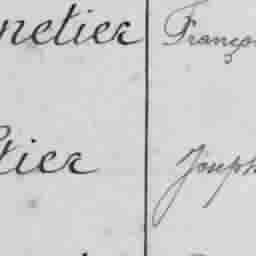 netier Franço
tier Joseph